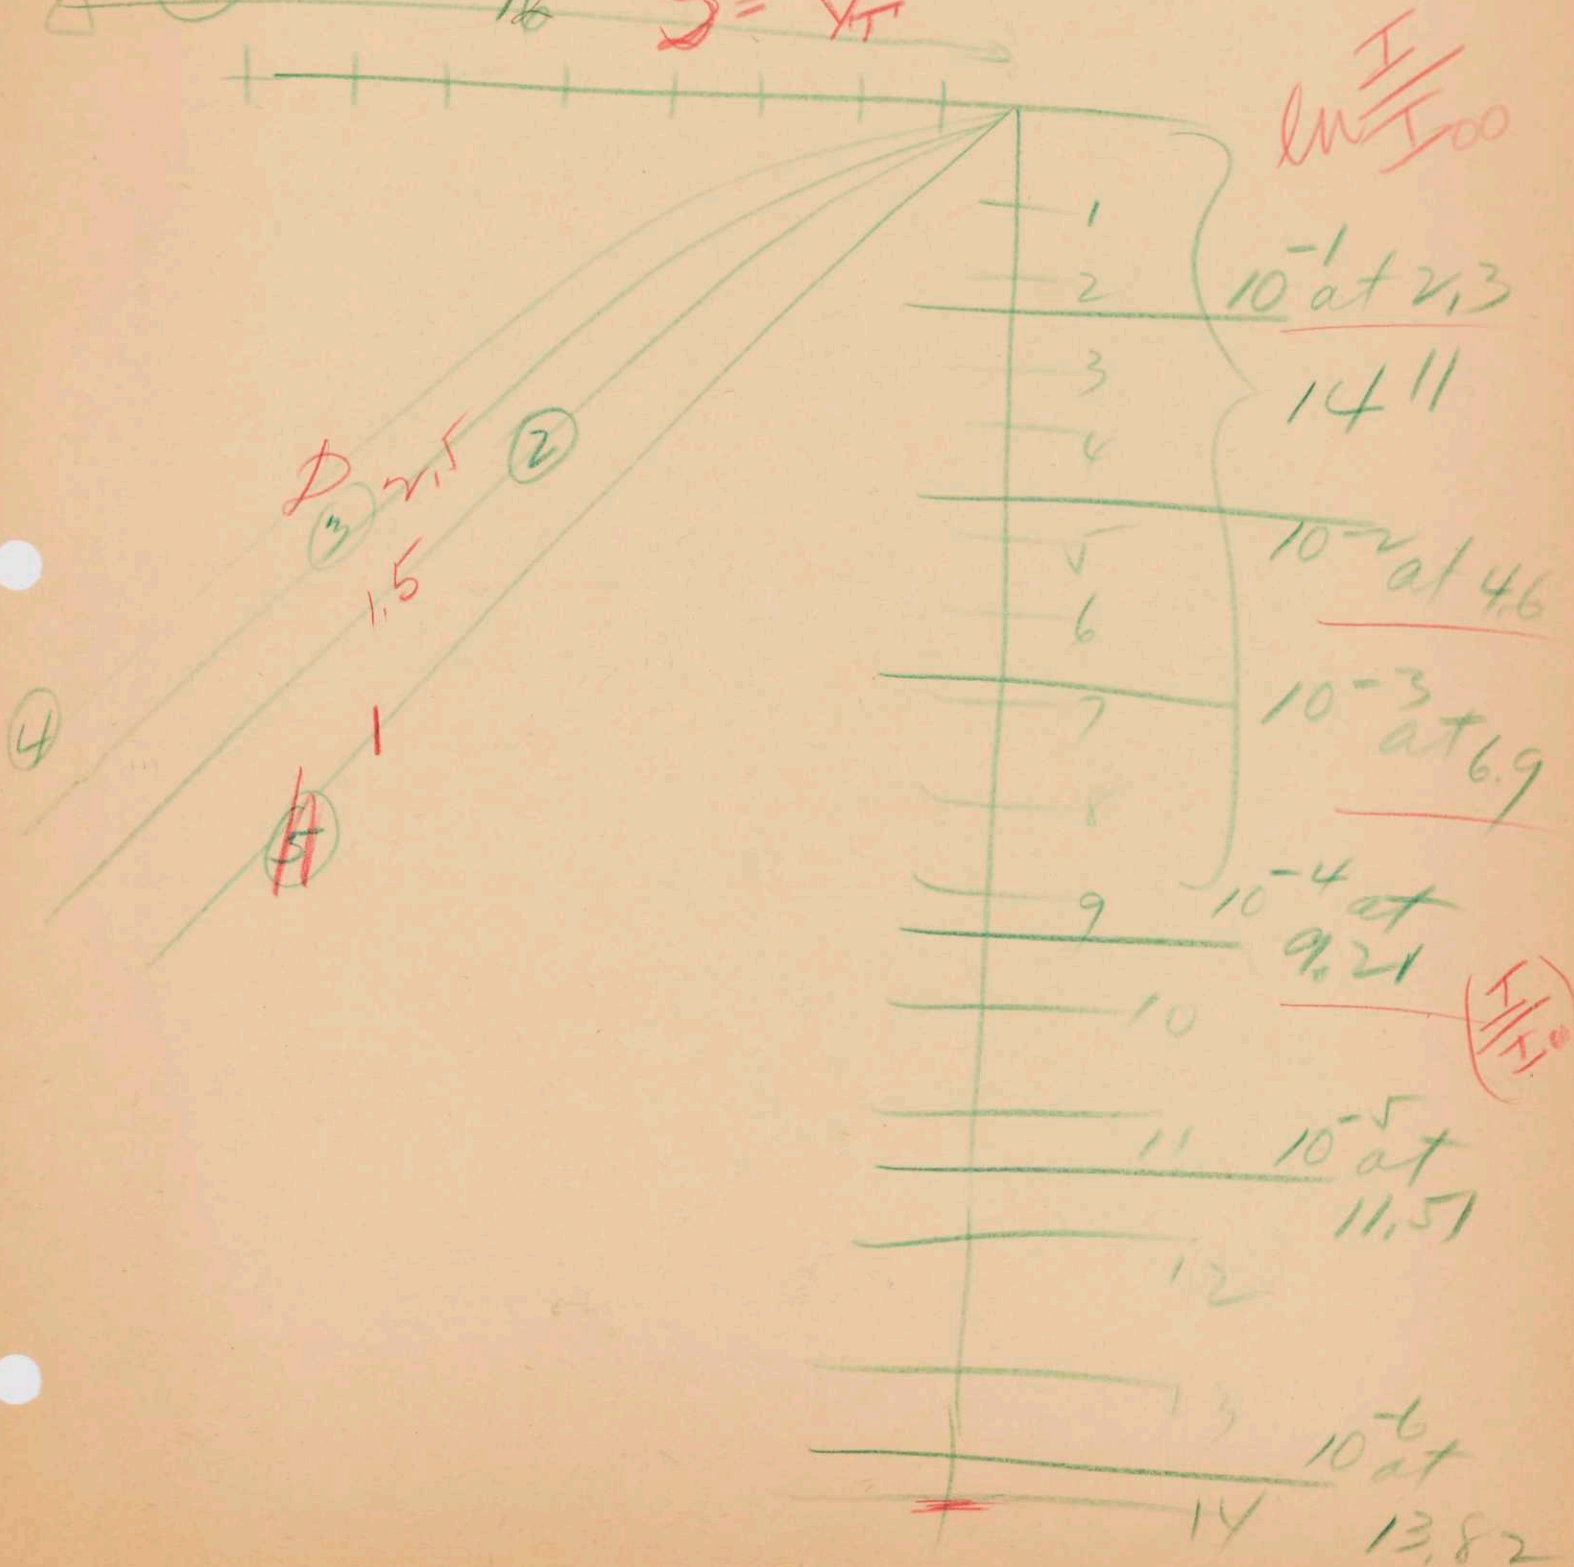 16
ln I/I₀₀
1
10⁻¹ at 2,3
2
3
14"
4
10⁻² at 4,6
5
6
10⁻³ at 6.9
7
8
10⁻⁴ at
9
9.21
10
I/I₀
11
10⁻⁵ at
11,51
12
13
10⁻⁶ at
14
13,82
D
2,5
②
③
1,5
④
1